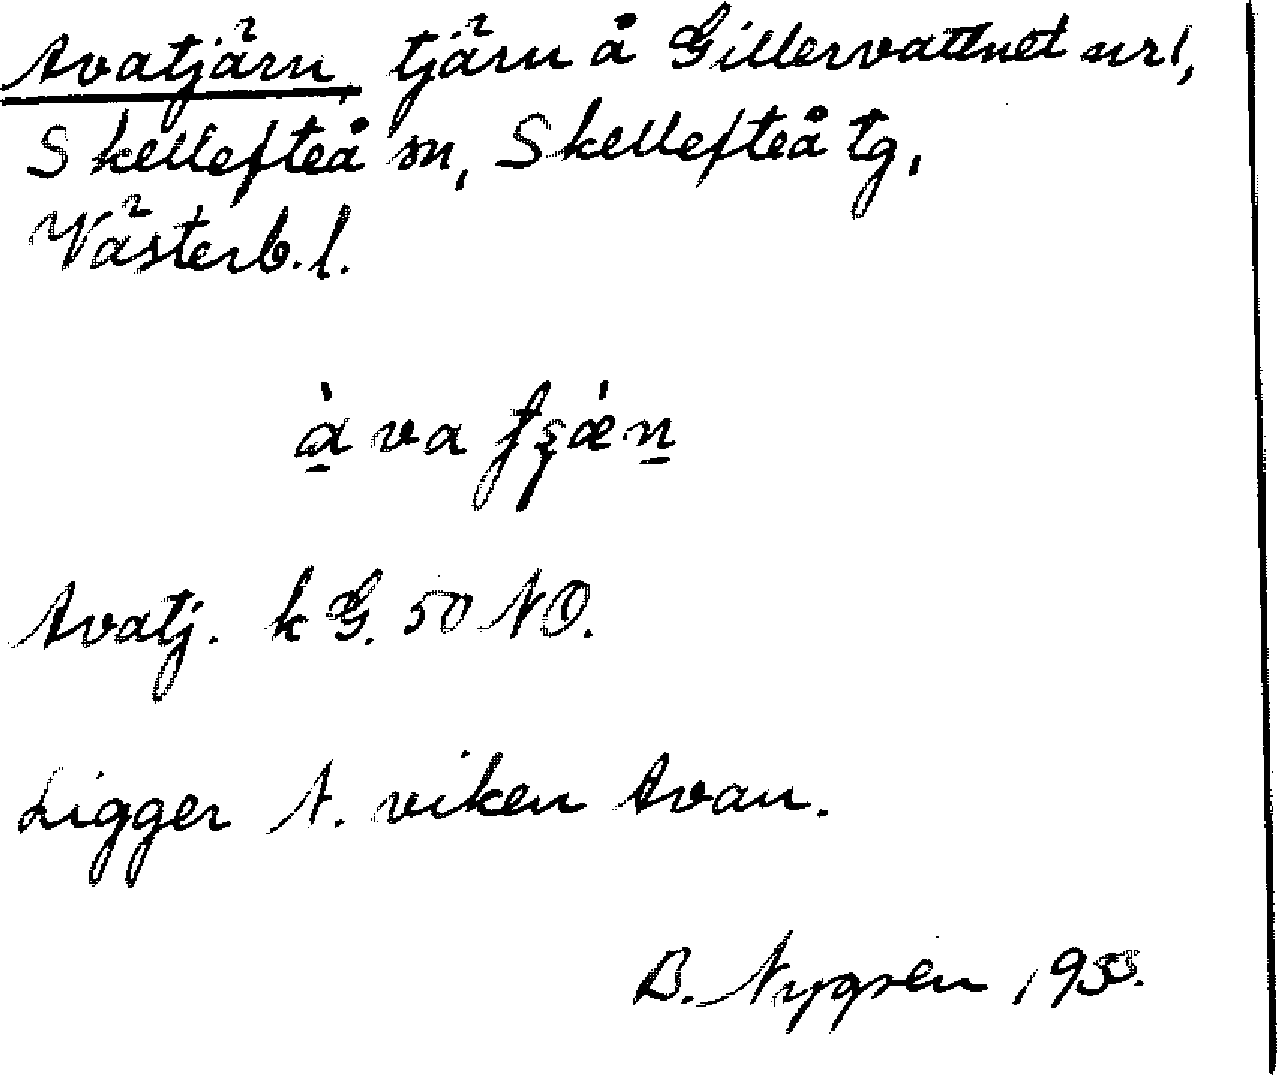 Avatjärn, tjärn å Gillervattnet nr 1,
Skellefteå sn, Skellefteå tg,
Västerb. l.
Avatj. k G. 50 NO.
Ligger N. viken Avan.
B. Nygren 1933.